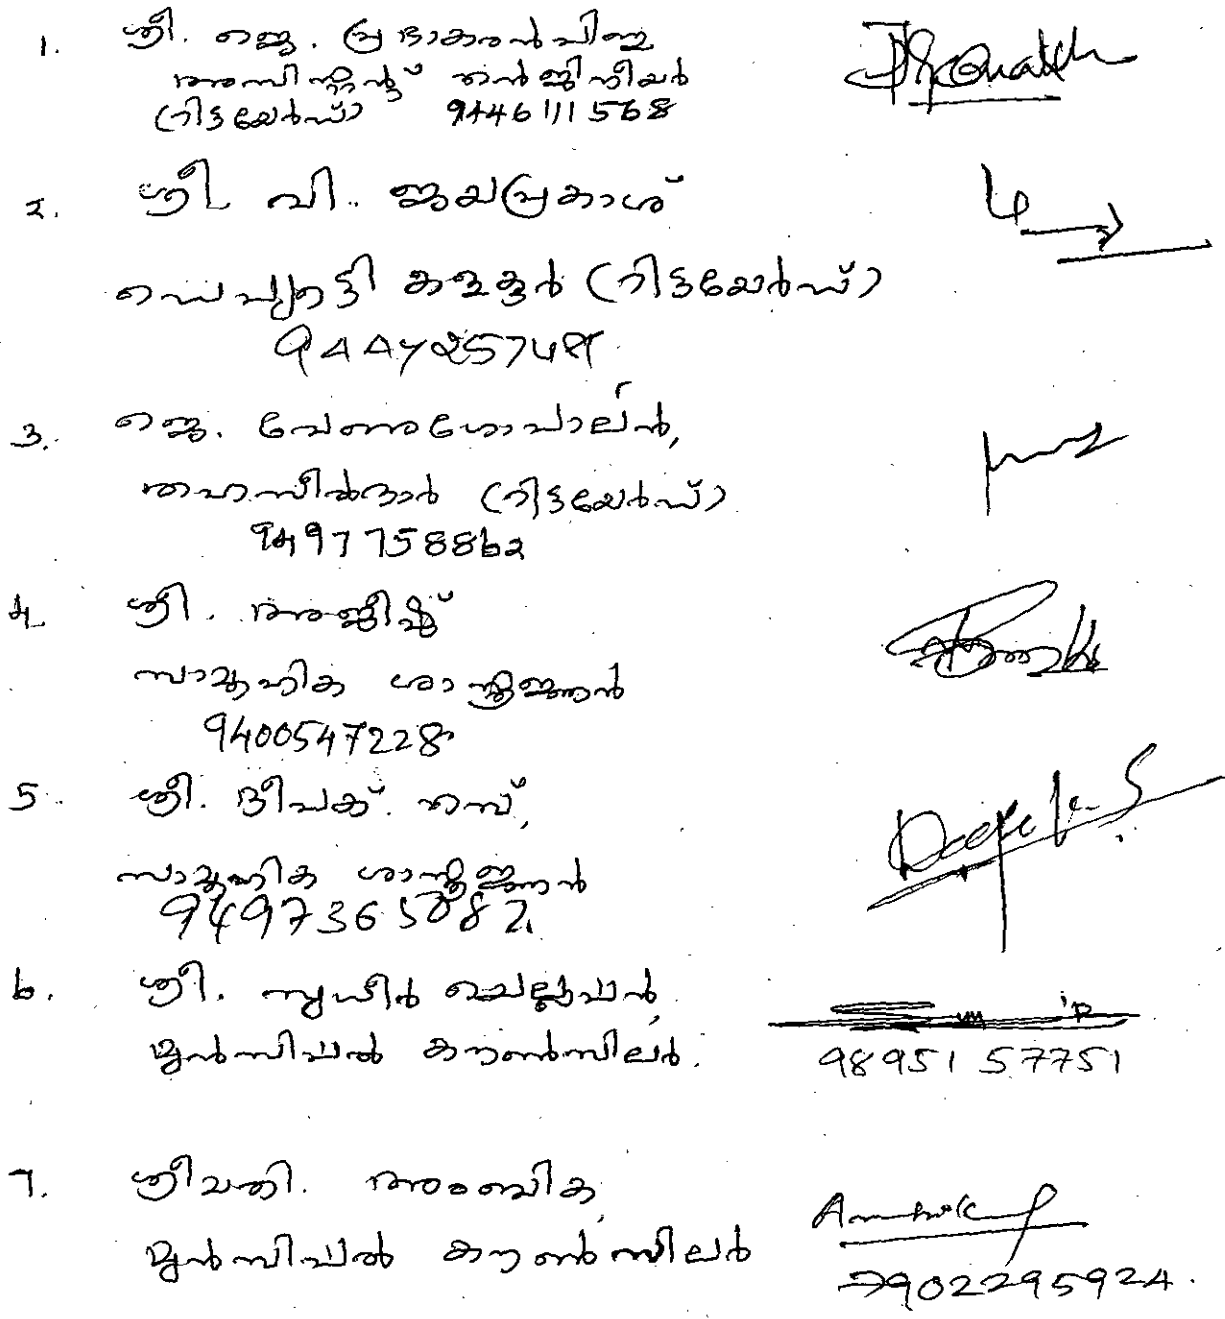 1. ശ്രീ. ജെ. പ്രഭാകരൻപിള്ള
അസിസ്റ്റന്റ് എൻജിനീയർ
(റിട്ടയേർഡ്) 9446111568
2. ശ്രീ വി. ജയപ്രകാശ്
ഡെപ്യൂട്ടി കളക്ടർ (റിട്ടയേർഡ്)
3. ജെ. വേണുഗോപാലൻ,
തഹസീൽദാർ (റിട്ടയേർഡ്)
9497758862
4. ശ്രീ. അജീഷ്
സാമൂഹിക ശാസ്ത്രജ്ഞൻ
9400547228
5. ശ്രീ. ദീപക്. എസ്,
Deepak S
സാമൂഹിക ശാസ്ത്രജ്ഞൻ
9497365082
6. ശ്രീ. സുധീർ ചെല്ലപ്പൻ,
മുൻസിപ്പൽ കൗൺസിലർ.
98951 57751
7. ശ്രീമതി. അംബിക,
മുൻസിപ്പൽ കൗൺസിലർ
7902295924.